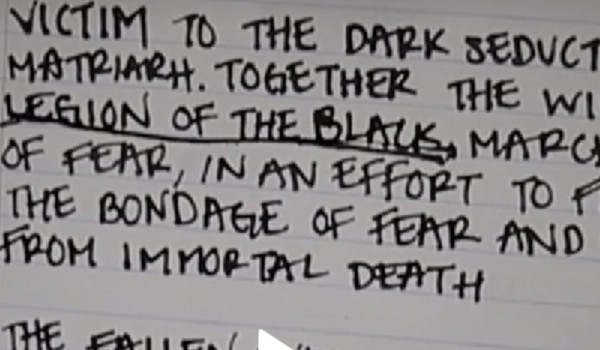 VICTIM TO THE DARK SEDUCT
MATRIARH. TOGETHER THE WI
LEGION OF THE BLACK, MARCH
OF FEAR, IN AN EFFORT TO F
THE BONDAGE OF FEAR AND
FROM IMMORTAL DEATH
THE FALLEN